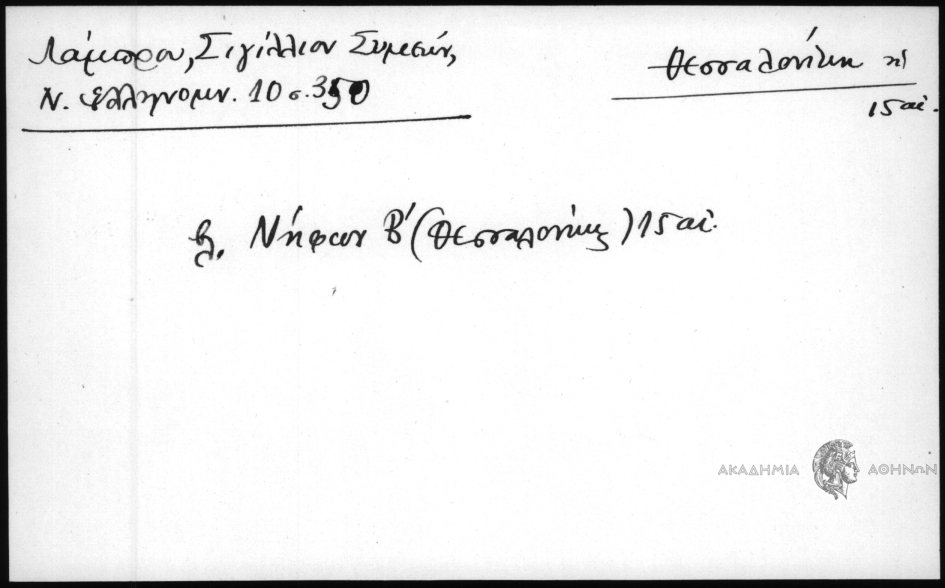 Λάμπρου, Σιγίλλιον Συμεών,
Ν. Ελληνομν. 10 σ. 350
Θεσσαλονίκη ἡ
15 αἰ.
βλ. Νήφων Β' (Θεσσαλονίκης) 15 αἰ.
ΑΚΑΔΗΜΙΑ ΑΘΗΝΩΝ